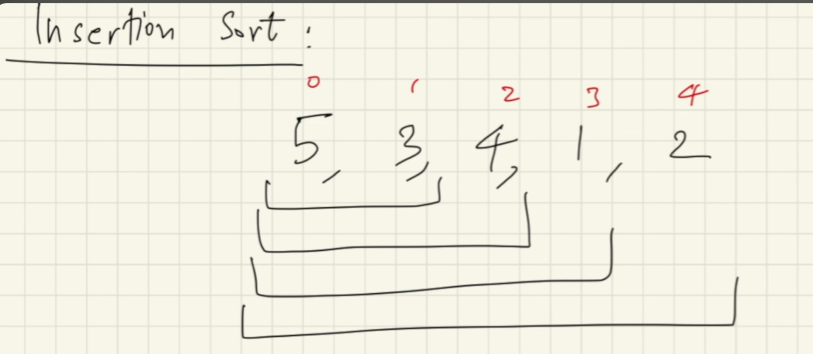 Insertion Sort :
0 1 2 3 4
5, 3, 4, 1, 2